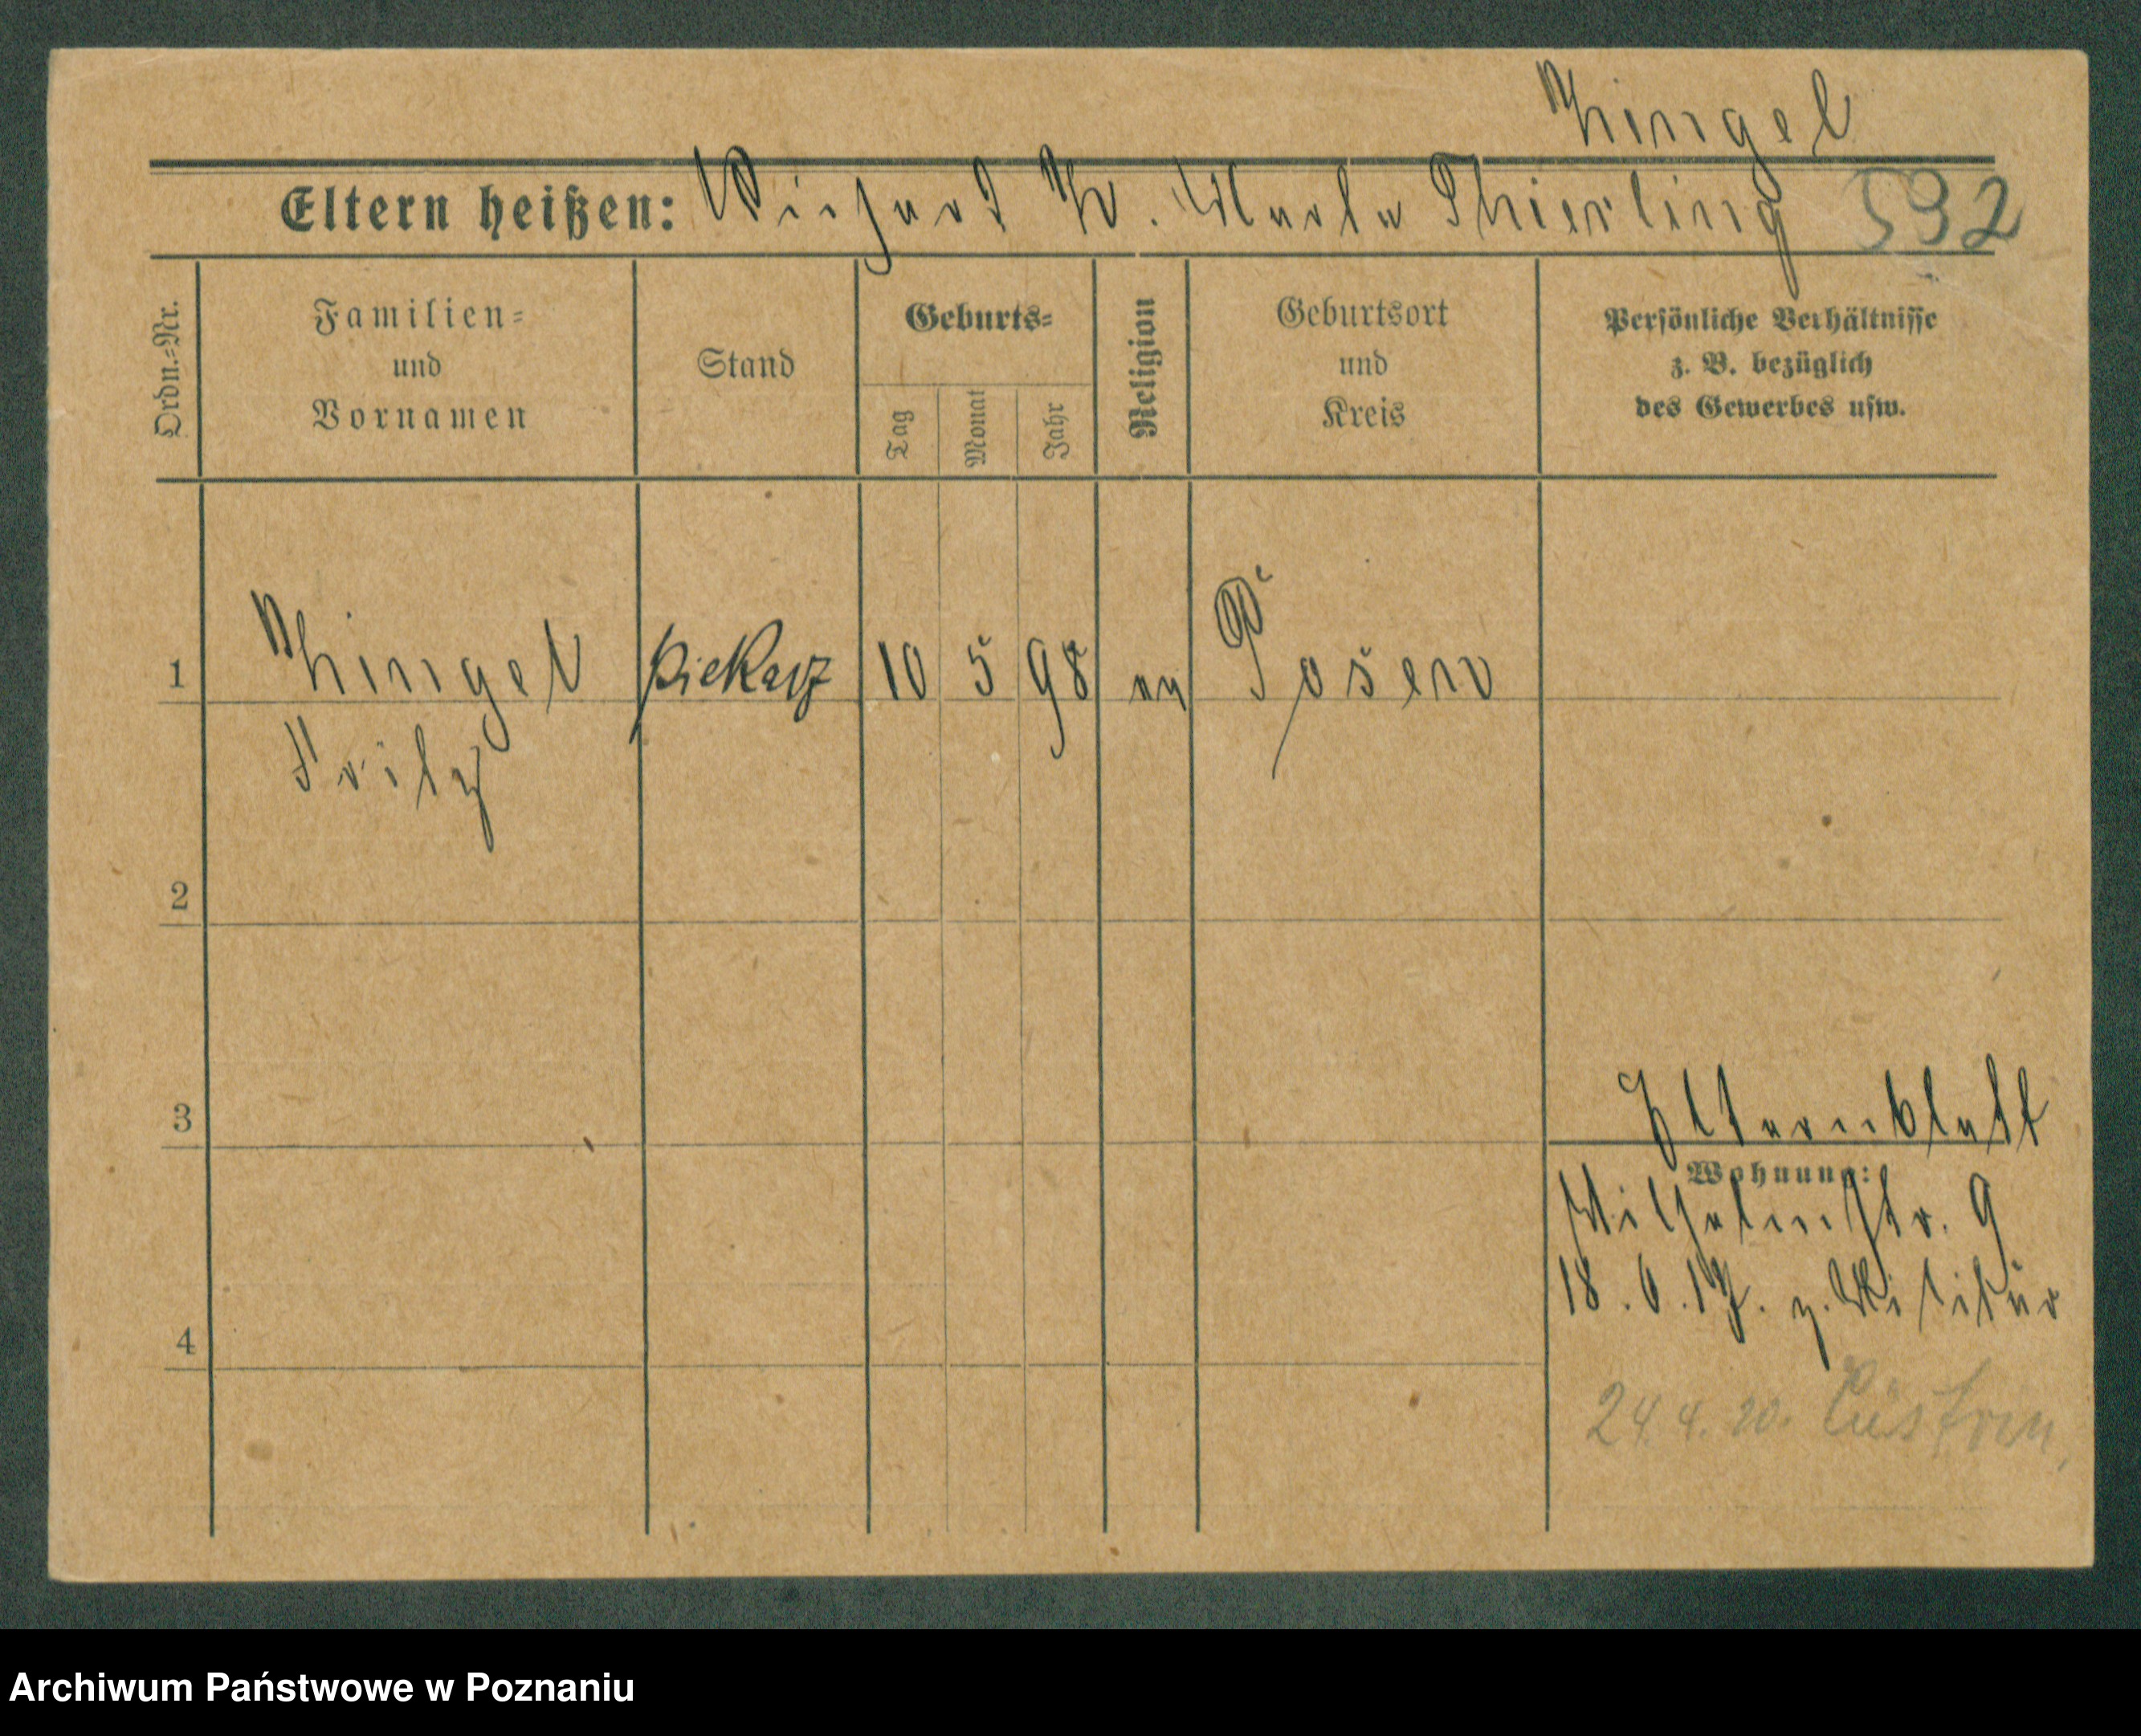 Eltern heißen: Richard
Thierling 532
Ordn.-Nr.
Familien-
und
Vornamen
Stand
Geburts-
Tag
Monat
Jahr
Religion
Geburtsort
und
Kreis
Persönliche Verhältnisse
z. B. bezüglich
des Gewerbes usw.
1 piekarz 10 5 98 ev Posen
Fritz
2
3
Elternblatt
Wohnung:
Wilhelmstr. 9
18.6.17. z. Militär
4
24.4.20. Cüstrin
Archiwum Państwowe w Poznaniu